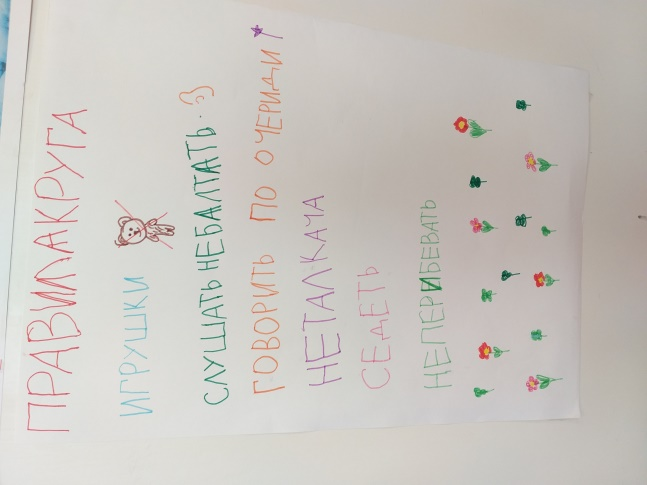 ПРАВИЛАКРУГА
ИГРУШКИ
СЛУШАТЬ НЕБАЛТАТЬ
ГОВОРИТЬ ПО ОЧЕРИДИ
НЕТАЛКАЧА
СЕДЕТЬ
НЕПЕРИБЕВАТЬ